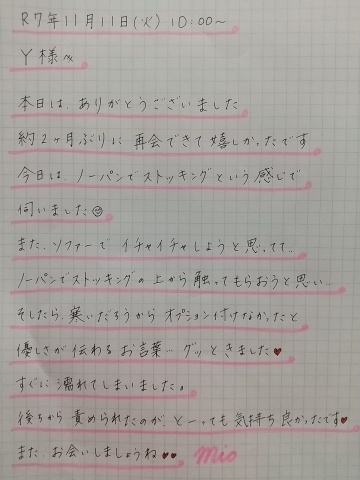 R7年11月11日(火) 10:00~
Y様へ
本日は、ありがとうございました
約2ヶ月ぶりに 再会できて 嬉しかったです
今日は、ノーパンでストッキングという感じで
伺いました
また、ソファーで イチャイチャしようと思ってて…
ノーパンでストッキングの上から 触ってもらおうと思い…
そしたら、寒いだろうから オプション付けなかったと
優しさが 伝わる お言葉… グッと きました♥
すぐに 濡れてしまいました。
後ろから 責められたのが、とーっても 気持ち 良かったです♥
また、お会いしましょうね♥♥ mio